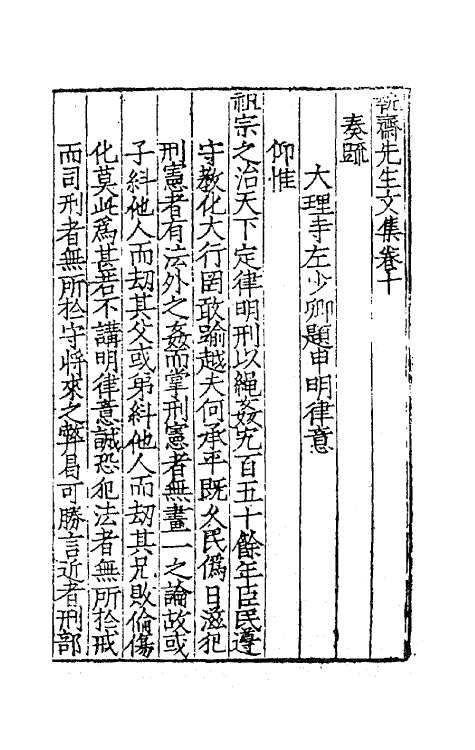 齋先生文集卷十
奏疏
大理寺左少卿題申明律意
仰惟
祖宗之治天下定律明刑以繩姦宄百五十餘年臣民遵
守教化大行罔敢踰越夫何承平既久民僞日滋犯
刑憲者有法外之姦而掌刑憲者無畫一之論故或
子糾他人而劫其父或弟糾他人而劫其兄敗倫傷
化莫此爲甚若不講明律意誠恐犯法者無所扵戒
而司刑者無所扵守將來之弊曷可勝言近者刑部